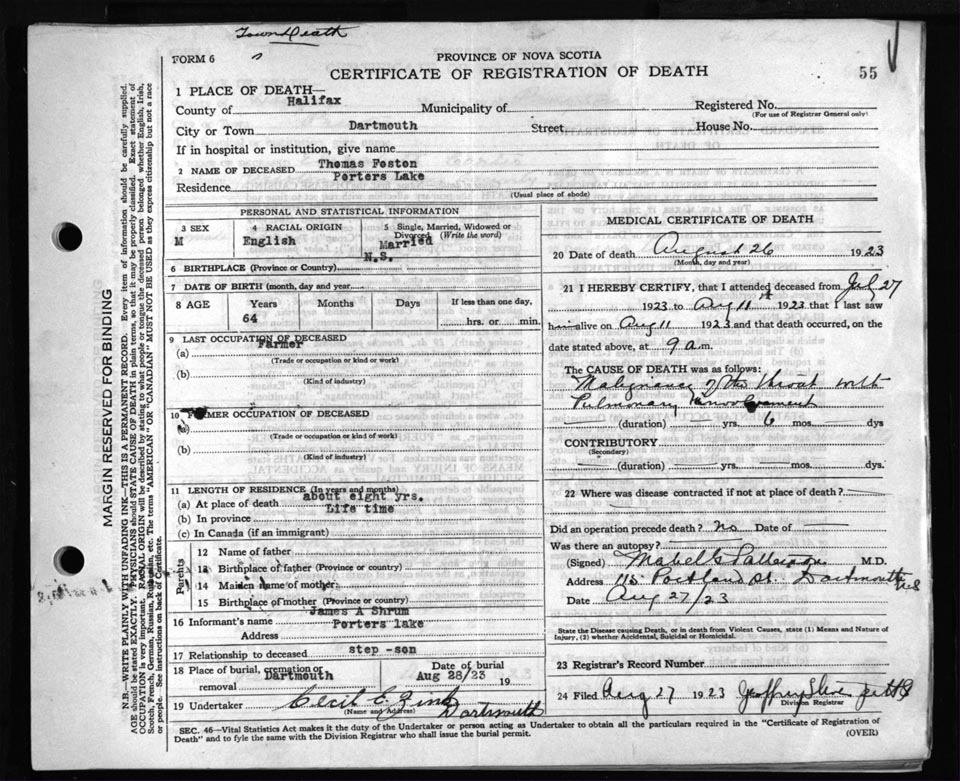 Town Death
FORM 6
PROVINCE OF NOVA SCOTIA
CERTIFICATE OF REGISTRATION OF DEATH
55
1 PLACE OF DEATH—
County of Halifax Municipality of Registered No.
(For use of Registrar General only)
City or Town Dartmouth Street House No.
If in hospital or institution, give name
2 NAME OF DECEASED Thomas Foston
Residence Porters Lake
(Usual place of abode)
PERSONAL AND STATISTICAL INFORMATION
3 SEX 4 RACIAL ORIGIN 5 Single, Married, Widowed or
Divorced (Write the word)
M English Married
N.S.
6 BIRTHPLACE (Province or Country)
7 DATE OF BIRTH (month, day and year)
8 AGE Years Months Days If less than one day,
64 hrs. or min.
9 LAST OCCUPATION OF DECEASED
(a) Farmer
(Trade or occupation or kind of work)
(b)
(Kind of industry)
10 FORMER OCCUPATION OF DECEASED
(a)
(Trade or occupation or kind of work)
(b)
(Kind of industry)
11 LENGTH OF RESIDENCE (In years and months)
(a) At place of death about eight yrs.
(b) In province Life time
(c) In Canada (if an immigrant)
Parents
12 Name of father
13 Birthplace of father (Province or country)
14 Maiden name of mother
15 Birthplace of mother (Province or country)
16 Informant's name James A Shrum
Address Porters lake
17 Relationship to deceased step -son
18 Place of burial, cremation or Date of burial
removal Dartmouth Aug 28/23 19
19 Undertaker Cecil E. Zink
(Name and Address) Dartmouth
MEDICAL CERTIFICATE OF DEATH
20 Date of death August 26 1923
(Month, day and year)
21 I HEREBY CERTIFY, that I attended deceased from July 27
1923 to Aug 11 1923 that I last saw
him alive on Aug 11 1923 and that death occurred, on the
date stated above, at 9 a.m.
The CAUSE OF DEATH was as follows:
Malignancy of the throat with
Pulmonary involvement
(duration) yrs. 6 mos. dys
CONTRIBUTORY
(Secondary)
(duration) yrs. mos. dys.
22 Where was disease contracted if not at place of death?
Did an operation precede death? no Date of
Was there an autopsy?
(Signed) Mabel G Patterson M.D.
Address 115 Portland St. Dartmouth NS
Date Aug 27/23
State the Disease causing Death, or in death from Violent Causes, state (1) Means and Nature of
Injury, (2) whether Accidental, Suicidal or Homicidal.
23 Registrar's Record Number
24 Filed Aug 27 1923 Geoffrey
Division Registrar
SEC. 46—Vital Statistics Act makes it the duty of the Undertaker or person acting as Undertaker to obtain all the particulars required in the "Certificate of Registration of
Death" and to fyle the same with the Division Registrar who shall issue the burial permit.
(OVER)
MARGIN RESERVED FOR BINDING
N.B.—WRITE PLAINLY WITH UNFADING INK—THIS IS A PERMANENT RECORD. Every item of information should be carefully supplied.
AGE should be stated EXACTLY. PHYSICIANS should STATE CAUSE OF DEATH in plain terms, so that it may be properly classified. Exact statement of
OCCUPATION is very important. RACIAL ORIGIN will be described by stating to what people or tongue the deceased person belonged whether English, Irish,
Scotch, French, German, Russian, Ruthenian, etc. The terms "AMERICAN" OR "CANADIAN" MUST NOT BE USED as they express citizenship but not a race
or people. See instructions on back of Certificate.